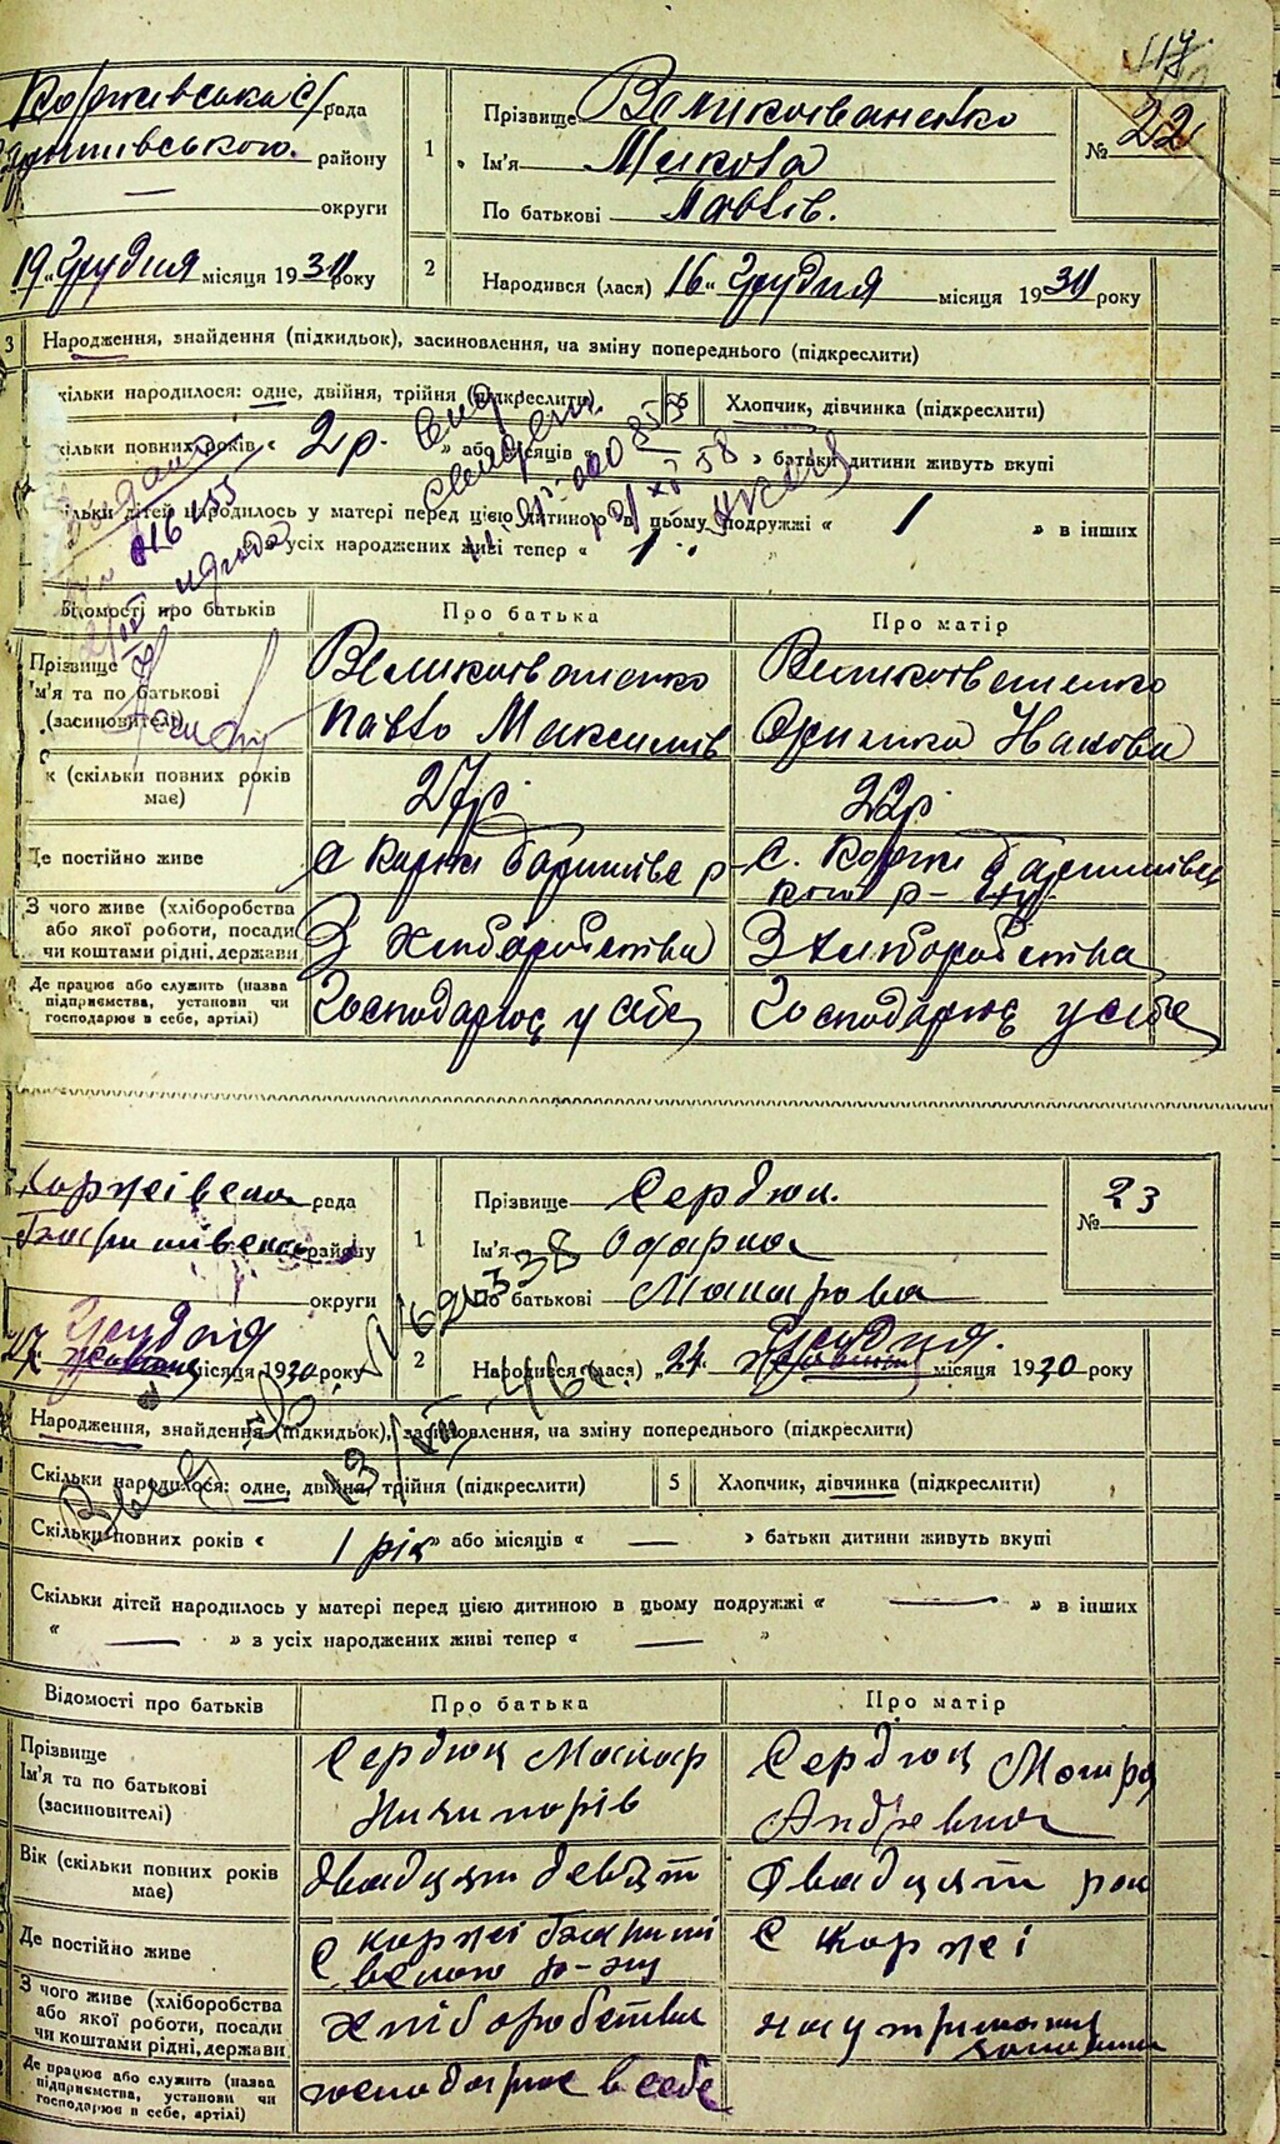 117
Коржівська с/рада
району
округи
1
Прізвище Великоіваненко
Ім'я Микола
По батькові Павлів.
№ 22
19 „ Грудня місяця 1930 року
2
Народився (лася) 16 „ Грудня місяця 1930 року
3
Народження, знайдення (підкидьок), засиновлення, на зміну попереднього (підкреслити)
кільки народилося: одне, двійня, трійня (підкреслити)
5
Хлопчик, дівчинка (підкреслити)
кільки повних років « 2 р. » або місяців « » батьки дитини живуть вкупі
ільки дітей народилось у матері перед цією дитиною в цьому подружжі « 1 » в інших
» з усіх народжених живі тепер « 1 »
Відомості про батьків
Про батька
Про матір
Прізвище
Ім'я та по батькові
(засиновителі)
Великоіваненко
Павло Максимів
Великоіваненко
Оринка
к (скільки повних років має)
27 р.
22 р.
Де постійно живе
с Коржі Баришівс р-
с. Коржі Баришівсь
кого р-ну
З чого живе (хліборобства
або якої роботи, посади
чи коштами рідні, держави
З хліборобства
З хліборобства
Де працює або служить (назва
підприємства, установи чи
господарює в себе, артілі)
Господарює у себе
Господарює у себе
Коржівська рада
Баришівського району
округи
1
Прізвище Сердюк.
Ім'я Одарка
По батькові Макарова
№ 23
27. Грудня місяця 1930 року
2
Народився (лася) „ 24. Грудня. місяця 1930 року
Народження, знайдення (підкидьок), засиновлення, на зміну попереднього (підкреслити)
Скільки народилося: одне, двійня, трійня (підкреслити)
5
Хлопчик, дівчинка (підкреслити)
Скільки повних років « 1 рік » або місяців « — » батьки дитини живуть вкупі
Скільки дітей народилось у матері перед цією дитиною в цьому подружжі « — » в інших
« — » з усіх народжених живі тепер « — »
Відомості про батьків
Про батька
Про матір
Прізвище
Ім'я та по батькові
(засиновителі)
Сердюк Макар
Ничипорів
Сердюк Мотря
Андревна
Вік (скільки повних років має)
двадцят девят
двадцят рок
Де постійно живе
с коржі Бариші
вського р-ну
с коржі
З чого живе (хліборобства
або якої роботи, посади
чи коштами рідні, держави
хліборобства
на утриманні
Де працює або служить (назва
підприємства, установи чи
господарює в себе, артілі)
господарює в себе